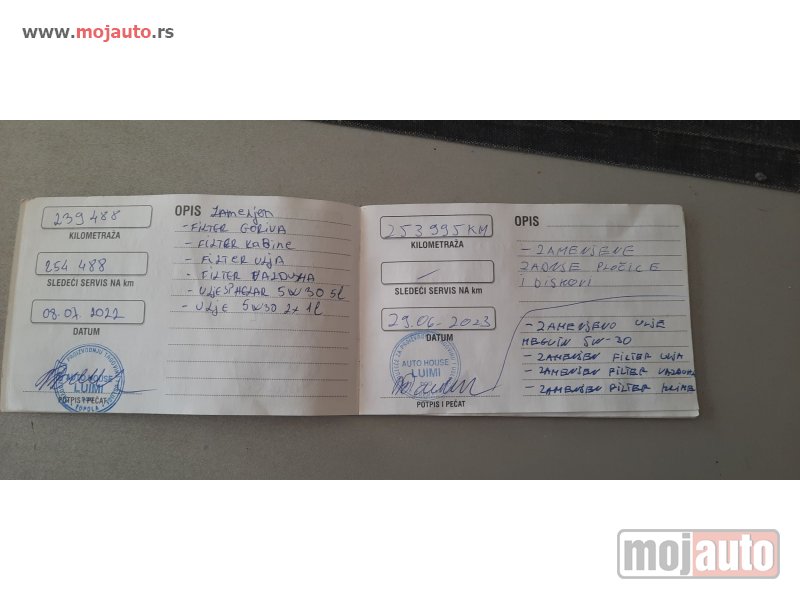 www.mojauto.rs
239 488
KILOMETRAŽA
254 488
SLEDEĆI SERVIS NA km
08.07.2022
DATUM
AUTO HOUSE
LUIMI
TOPOLA
POTPIS I PEČAT
OPIS Zamenjen
- FILTER GORIVA
- FILTER KABINE
- FILTER ULJA
- FILTER VAZDUHA
- ULJE 5W30 5L
- ULJE 5W30 2x1L
253 995 KM
KILOMETRAŽA
-
SLEDEĆI SERVIS NA km
29.06-2023
DATUM
AUTO HOUSE
LUIMI
POTPIS I PEČAT
OPIS
- ZAMENJENE
ZADNJE PLOČICE
I DISKOVI
- ZAMENJENO ULJE
MEGUIN 5W-30
- ZAMENJEN FILTER ULJA
- ZAMENJEN FILTER VAZDUHA
- ZAMENJEN FILTER KLIME
mojauto